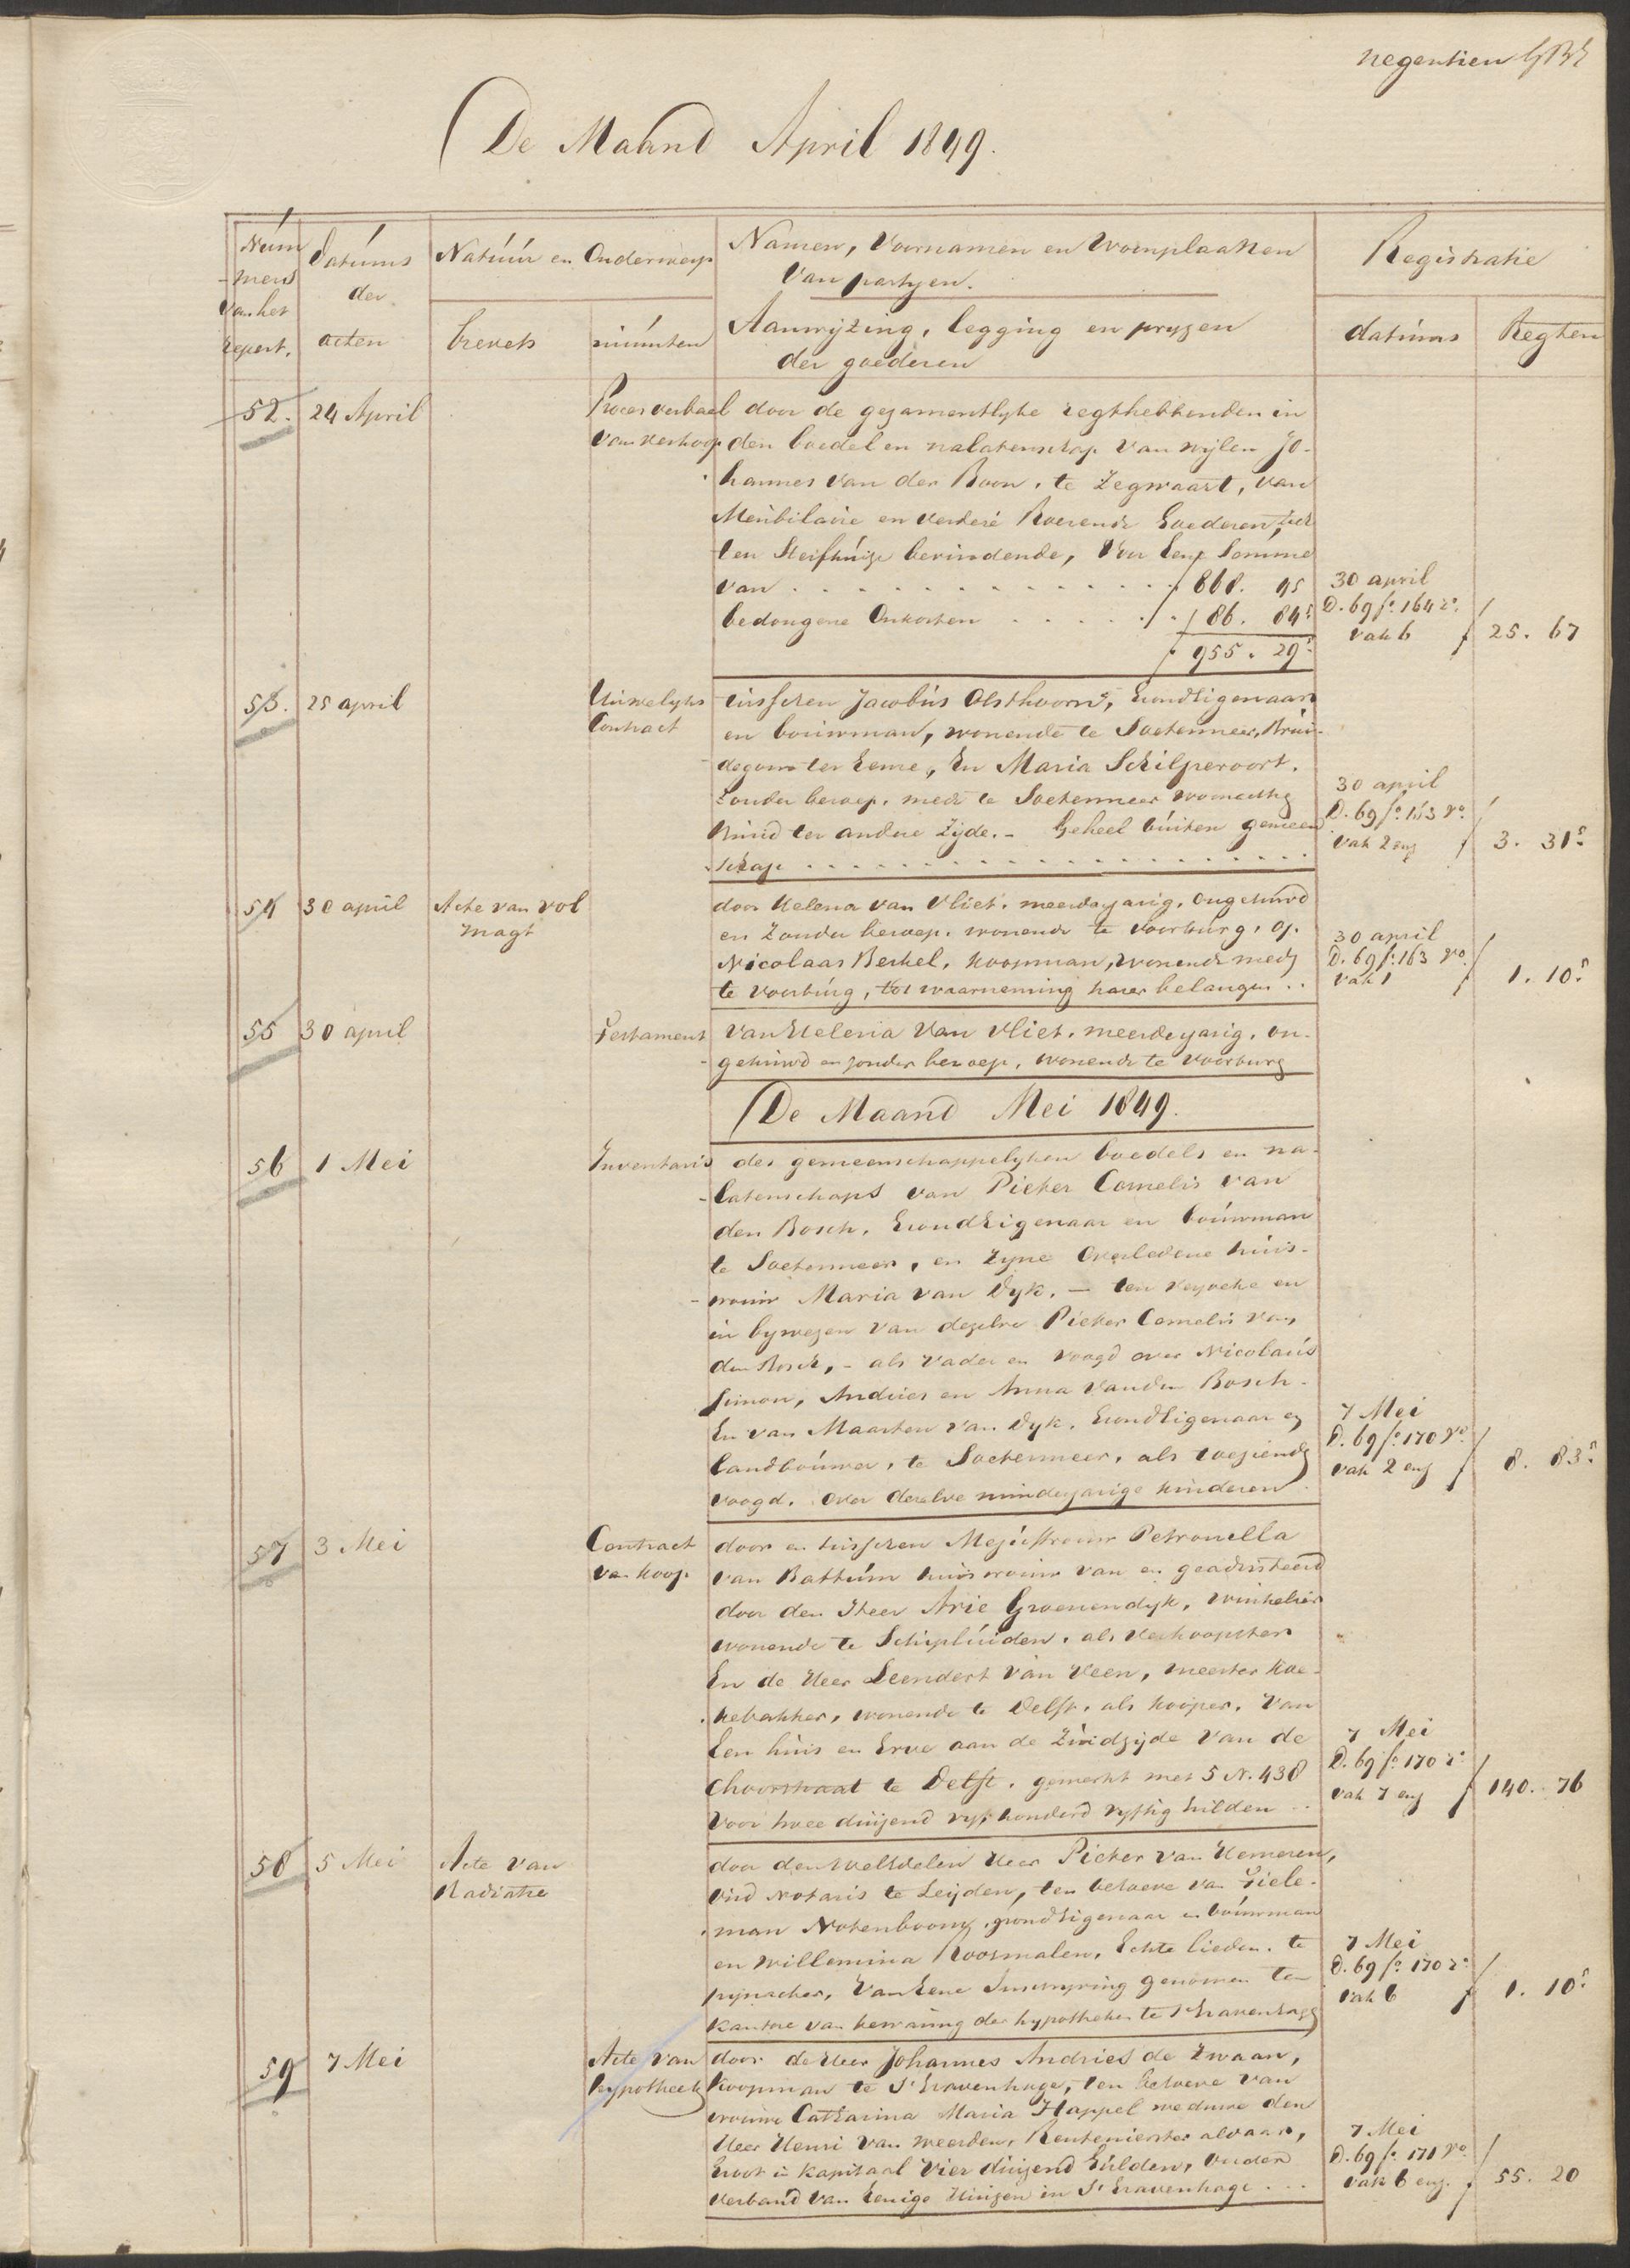 negentien
De Maand April 1849.
Núm
-mers
van het
repert.
datúms
der
acten
Natúúr en Onderwerp
brevets
minúúten
Namen, Voornamen en Woonplaatsen
van partyen.
Aanwyzing, legging en pryzen
der goederen
Registratie
datúms
Regten
52. 24 April
Proces verbaal
van verkoop
door de gezamentlyke regthebbenden in
den boedel en nalatenschap van wylen Jo-
hannes van der Boon, te Zegwaart, van
Meúbilaire en verdere Roerende Goederen,
ten Sterfhúize bevindende, voor Eene Somme
van . . . . . . . . . . f 868. 45
bedongene Onkosten . . . . . f 86. 84⁵
f 955. 29⁵
30 april
D. 69 fo. 164 ro.
vak 6
f 25. 67
53. 25 april
Húwelyks
Contract
tússchen Jacobús Olsthoorn, Grondeigenaar
en boúwman, wonende te Soetermeer, Brúi-
degom ter Eene, En Maria Schilperoort,
zonder beroep, mede te Soetermeer woonachtig
Brúid ter andere zyde. - Geheel búiten gemeen
-schap . . . . . . . . . .
30 april
D. 69 fo. 163 vo.
vak 2 env
f 3. 31⁵
54 30 april
Acte van vol
magt
door Helena van Vliet, meerderjarig, ongehúwd
en zonder beroep, wonende te Voorbúrg, op
Nicolaas Berkel, koopman, wonende mede
te Voorbúrg, tot waarneming harer belangen . .
30 april
D. 69 fo. 163 vo.
vak 1
f 1. 10⁵
55 30 april
Testament
van Helena van Vliet, meerderjarig, on-
gehúwd en zonder beroep, wonende te Voorburg
De Maand Mei 1849.
56 1 Mei
Inventaris
des gemeenschappelyken boedels en na-
-latenschaps van Pieter Cornelis van
den Bosch, Grondeigenaar en boúwman
te Soetermeer, en zyne Overledene húis-
-vroúw Maria van Dyk. — ten verzoeke en
in bywezen van dezelve Pieter Cornelis van
den Bosch, - als Vader en Voogd over Nicolaús
Simon, Andries en Anna van den Bosch.
En van Maarten van Dyk, Grondeigenaar en
landboúwer, te Soetermeer, als toeziende
voogd, over dezelve minderjarige kinderen.
7 Mei
D. 69 fo. 170 vo.
vak 2 env
f 8. 83⁵
57 3 Mei
Contract
van koop
door en tússchen Mejúffroúw Petronella
van Battúm húisvroúw van en geadsisteerd
door den Heer Arie Groenendyk, winkelier
wonende te Schiplúiden, als Verkoopster
En de Heer Leendert van Veen, meester koe-
-kebakker, wonende te Delft, als kooper. Van
Een húis en Erve aan de Zúidzyde van de
Choorstraat te Delft, gemerkt met 5 N. 438
Voor twee dúizend vyf honderd vyftig Gúlden . .
7 Mei
D. 69 fo. 170 ro.
vak 7 env
f 140. 76
58 5 Mei
Acte van
Radiatie
door den WelEdelen Heer Pieter van Hemeren,
Oúd Notaris te Leijden, ten behoeve van Tiele-
man Notenboom, grondeigenaar en boúwman
en Willemina Roosmalen, Echte lieden, te
pynacker, Van Eene Inschryving genomen ten
kantore van bewaring der hypotheken te s'Gravenhage
7 Mei
D. 69 fo. 170 ro.
vak 6
f 1. 10⁵
59 7 Mei
Acte van
hypotheek
door de Heer Johannes Andries de Zwaan,
Koopman te S'Gravenhage, ten behoeve van
vroúwe Catharina Maria Happel weduwe den
Heer Henri van Weerden, Rentenierster aldaar,
Groot in kapitaal Vier dúizend Gúlden, Onder
Verband van Eenige Húizen in S'Gravenhage . . .
7 Mei
D. 69 fo. 171 vo.
vak 6 env.
f 55. 20